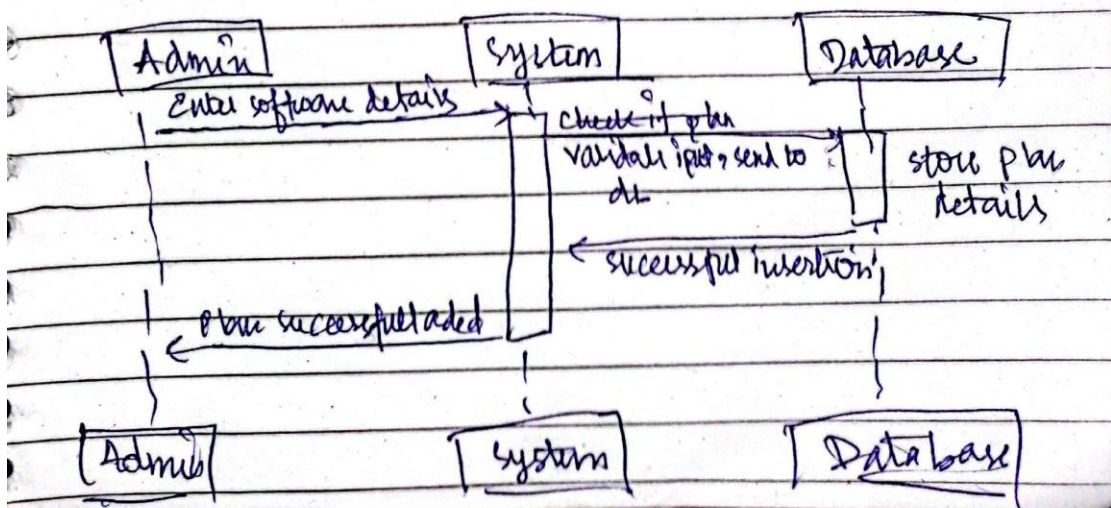 Admin
System
Database
Enter software details
check if plan
validate iput, send to
db
store plan
details
successful insertion
Plan successfull aded
Admin
System
Database